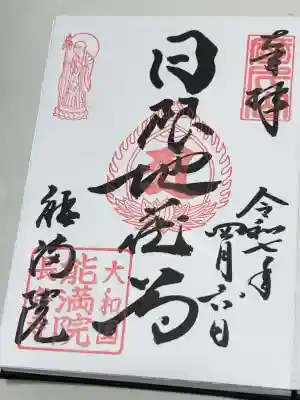 奉拝
令和七年
四月六日
日限地蔵尊
能満院
大和國
能満院